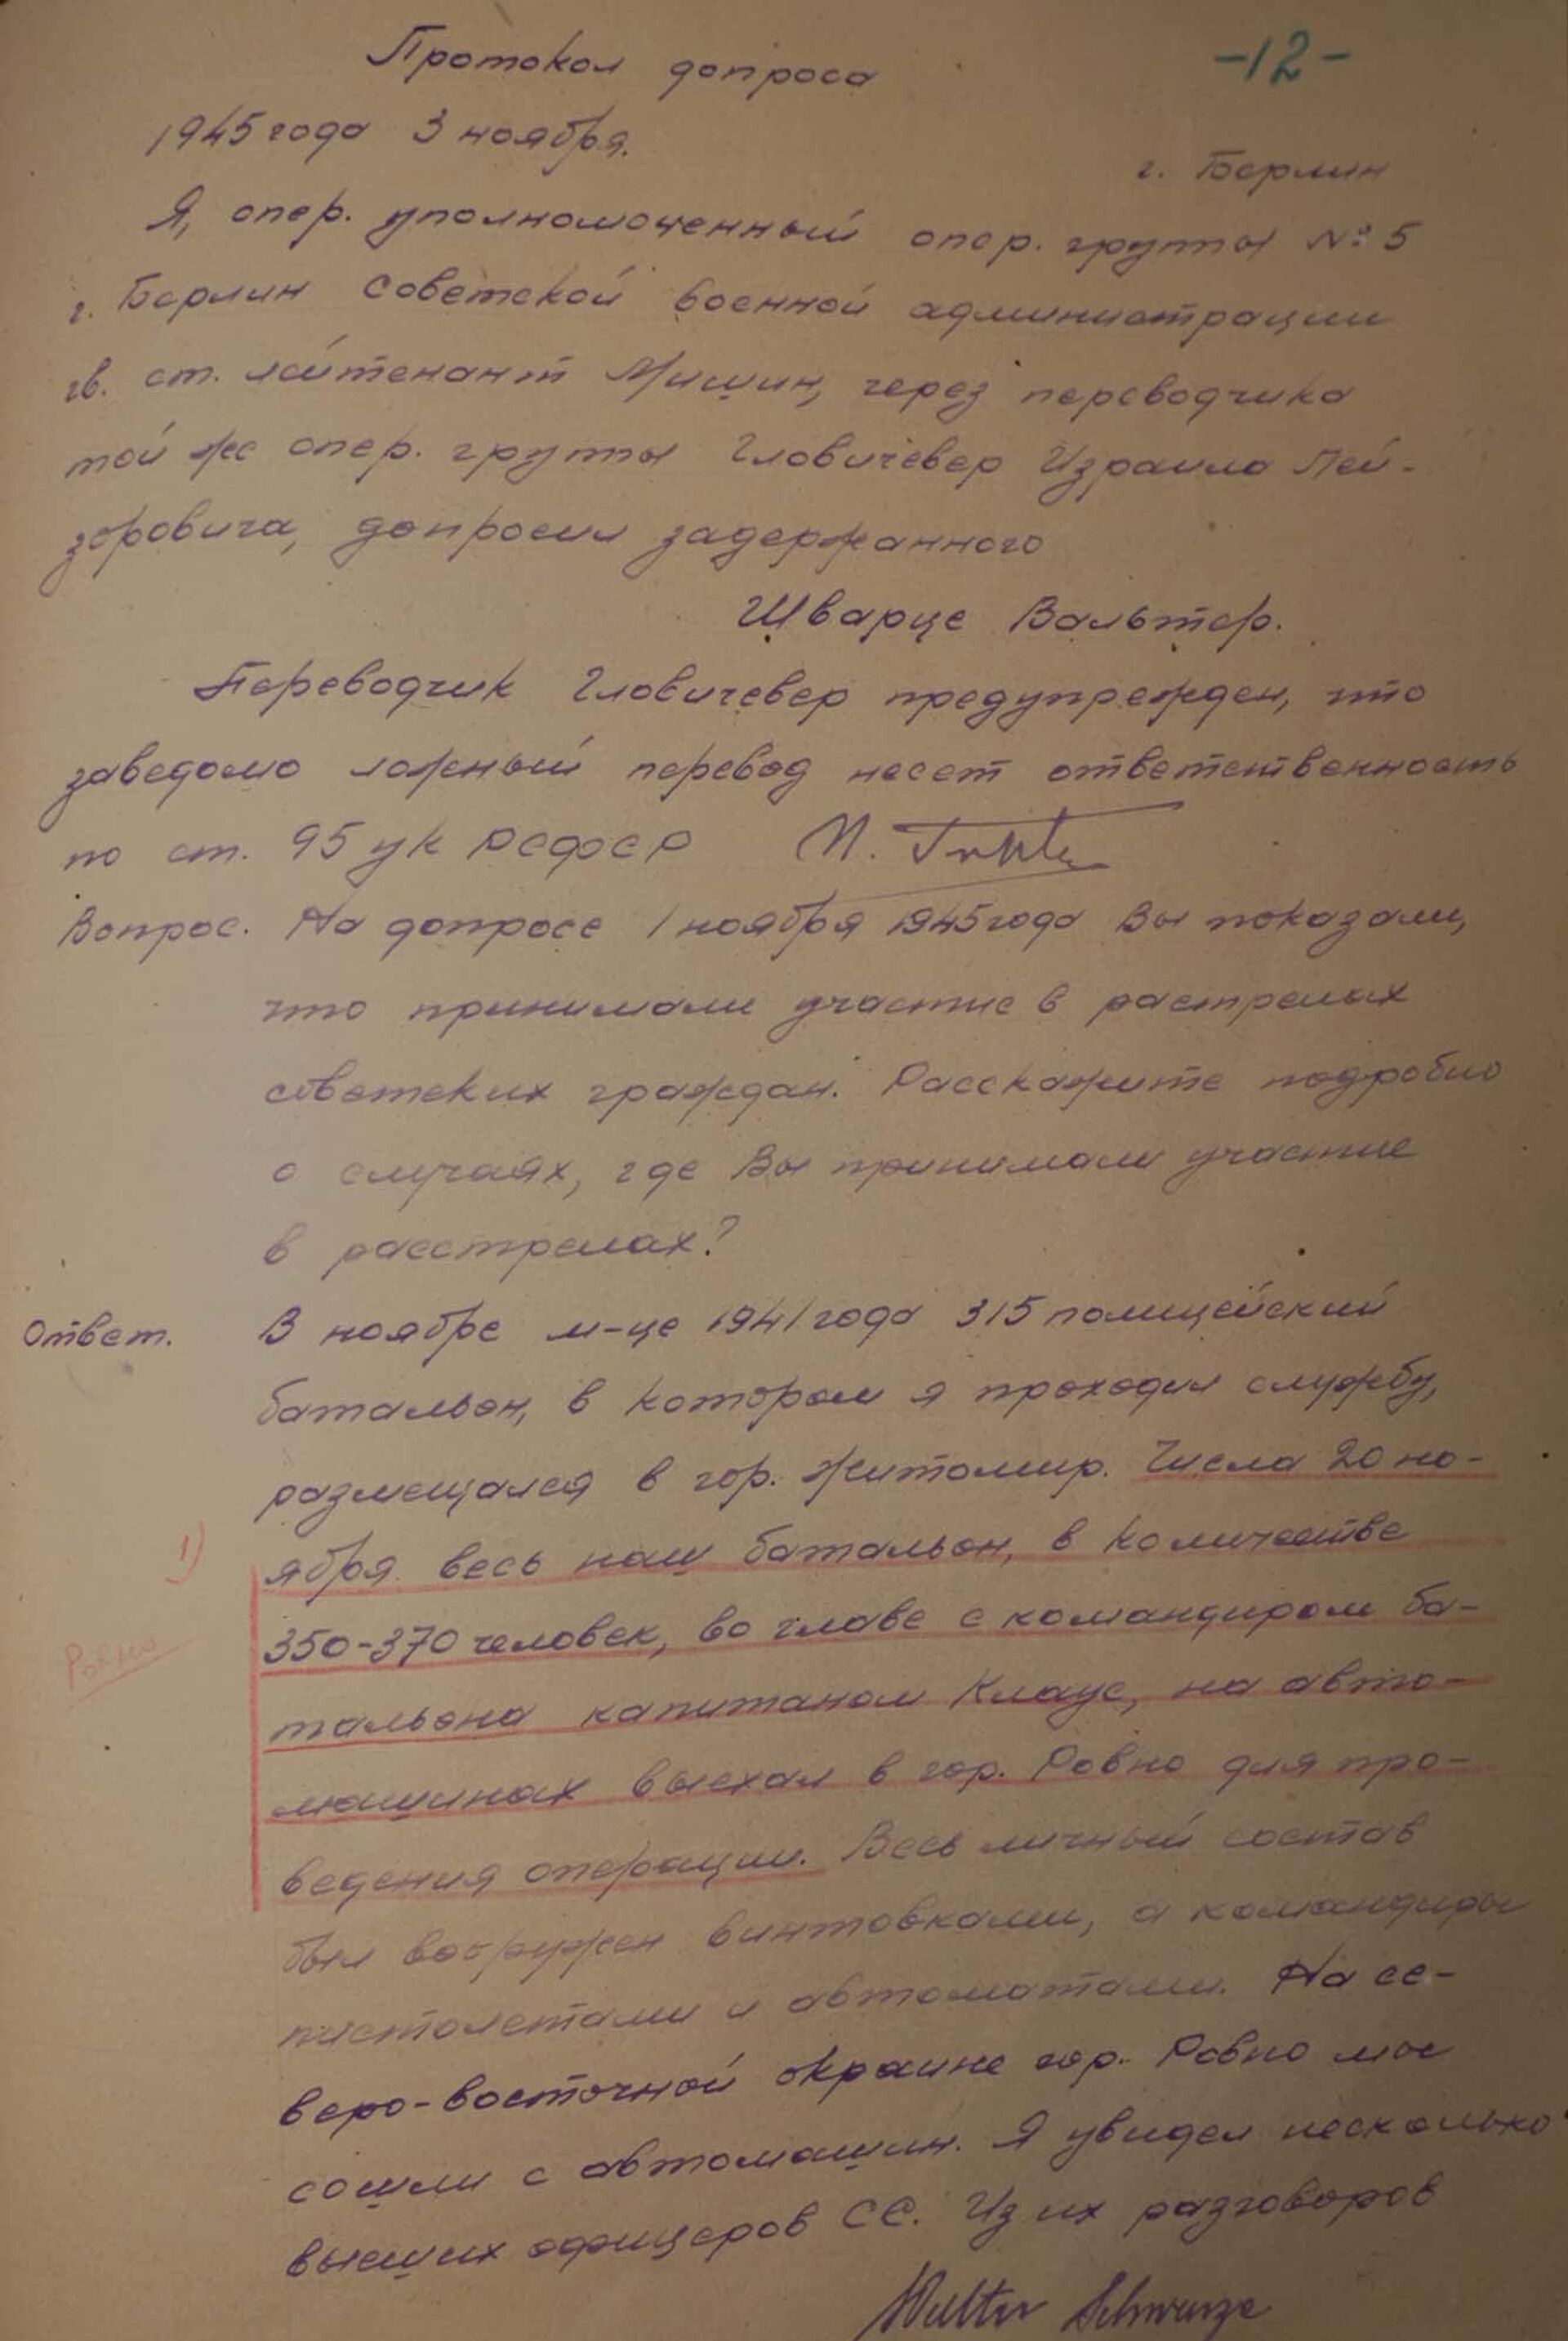 Протокол допроса
-12-
1945 года 3 ноября.
г. Берлин
Я, опер. уполномоченный опер. группы № 5
г. Берлин Советской военной администрации
гв. ст. лейтенант Мишин, через переводчика
той же опер. группы Гловичевер Израила Лей-
зеровича, допросил задержанного
Шварце Вальтер.
Переводчик Гловичевер предупрежден, что
заведомо ложный перевод несет ответственность
по ст. 95 ук РСФСР
Вопрос. На допросе 1 ноября 1945 года Вы показали,
что принимали участие в растрелах
советских граждан. Расскажите подробно
о случаях, где Вы принимали участие
в расстрелах?
Ответ. В ноябре м-це 1941 года 315 полицейский
батальон, в котором я проходил службу,
размещался в гор. Житомир. Числа 20 но-
1)
ября весь наш батальон, в количестве
350-370 человек, во главе с командиром ба-
Ровно
тальона капитаном Клаус, на авто-
машинах выехал в гор. Ровно для про-
ведения операции. Весь личный состав
был вооружен винтовками, а командиры
пистолетами и автоматами. На се-
веро-восточной окраине гор. Ровно мы
сошли с автомашин. Я увидел несколько
высших офицеров СС. Из их разговоров
Walter Schwarze